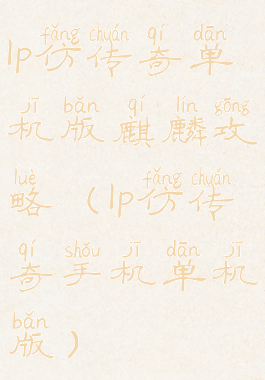 fǎng chuán qí dān
lp仿传奇单
jī bǎn qí lín gōng
机版麒麟攻
luè fǎng chuán
略（lp仿传
qí shǒu jī dān jī
奇手机单机
bǎn
版）